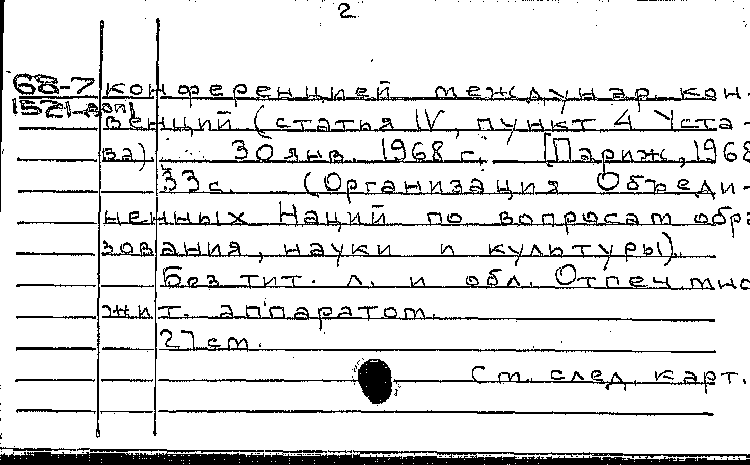 2
68-7 конференцией междунар. кон-
1521-доп венций (статья IV, пункт 4 Уста-
ва). 30 янв. 1968 г. [Париж, 1968
33 с. (Организация Объеди-
ненных Наций по вопросам обра
зования, науки и культуры).
Без тит. л. и обл. Отпеч. мно
жит. аппаратом.
27 см.
См. след. карт.